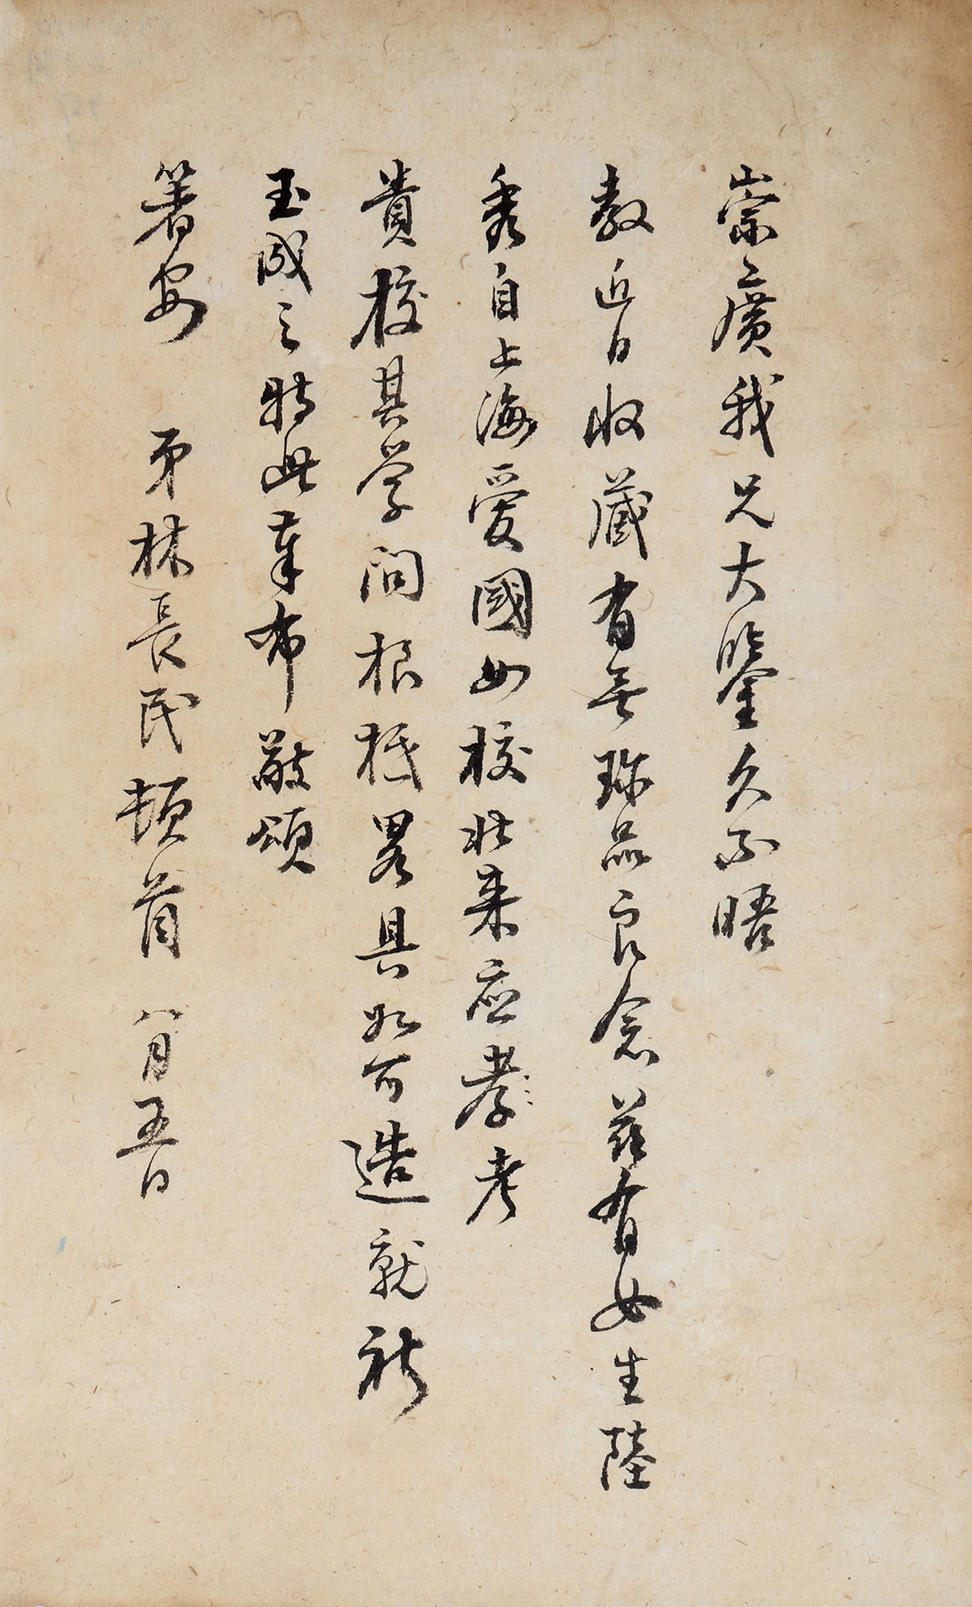 崇广我兄大鑒久不晤
教近日收藏有無珍品良念茲有女生陸
秀自上海愛國女校北来应孝考
貴校其学問根柢畧具如可造就祈
玉成之特此奉布敬頌
箸安　弟林長民頓首　八月五日